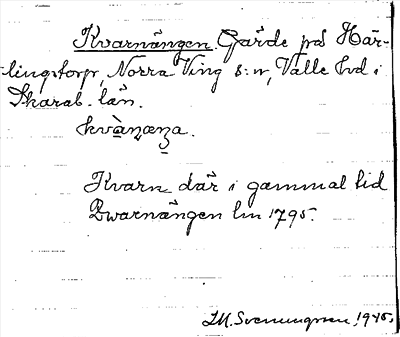 Kvarnängen. Gärde på Här-
lingstorp, Norra Ving s:n, Valle hd i
Skarab. län.
kvànæŋa.
Kvarn där i gammal tid
Qwarnängen lm 1795.
I.M. Svenungsson, 1945.